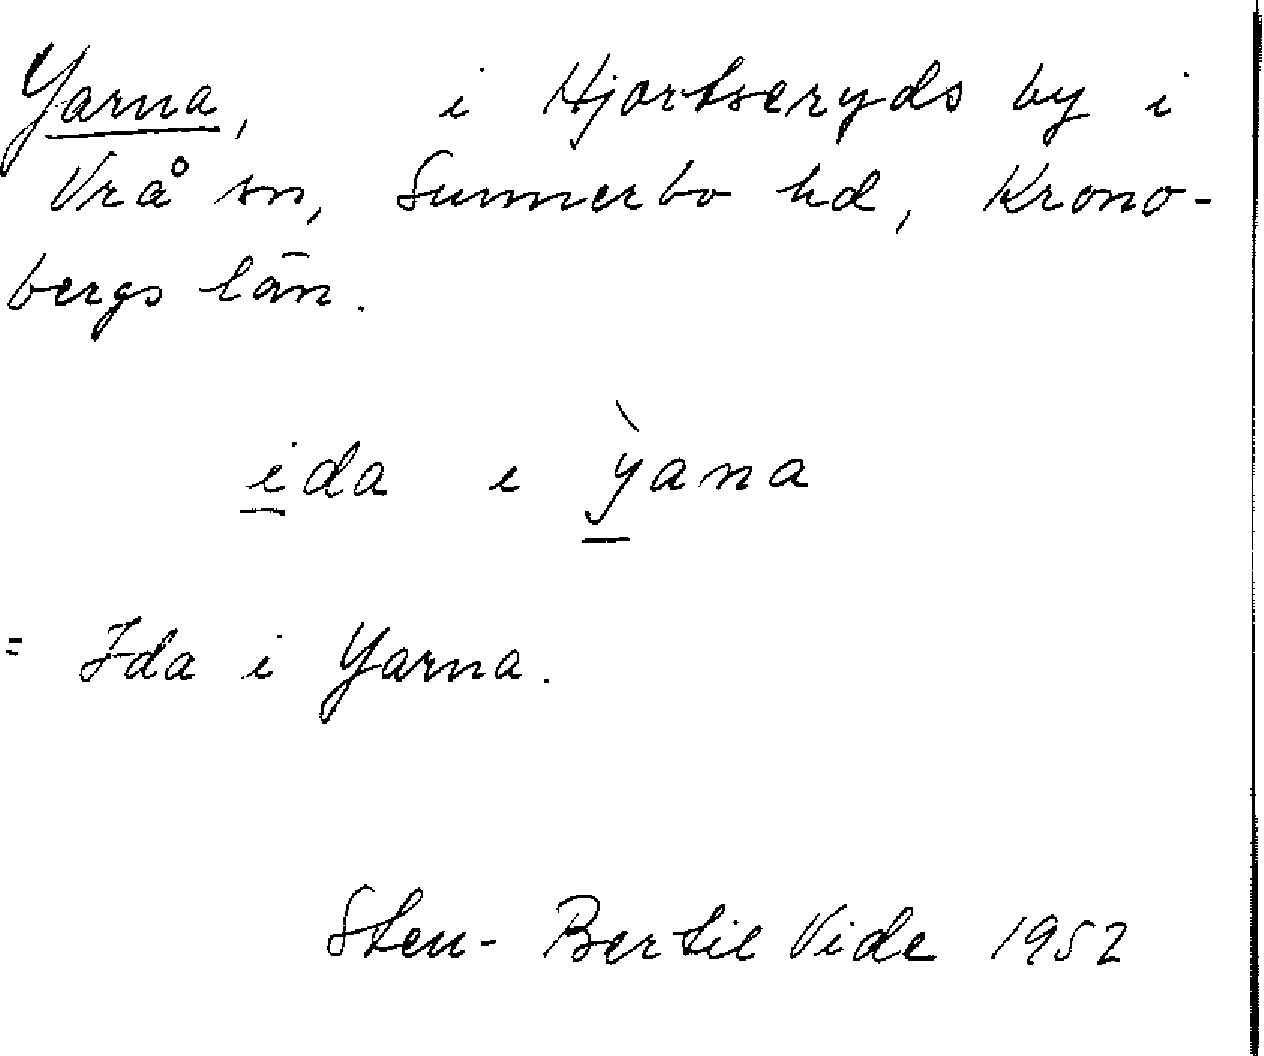 Yarna, i Hjortseryds by i
Vrå sn, Sunnerbo hd, Krono-
bergs län.
ida i ỳana
= Ida i Yarna.
Sten-Bertil Vide 1952